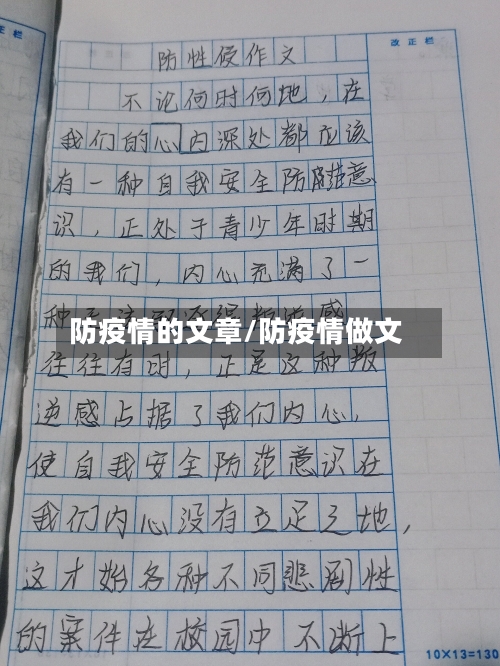 改正栏
防性侵作文
不论何时何地，在
我们的心内深处都应该
有一种自我安全防范意
识，正处于青少年时期
的我们，内心充满了一
种
感
防疫情的文章/防疫情做文
往往有时，正是这种叛
逆感占据了我们内心，
使自我安全防范意识在
我们内心没有立足之地，
这才始各种不同悲剧性
的案件在校园中不断上
10×13=130